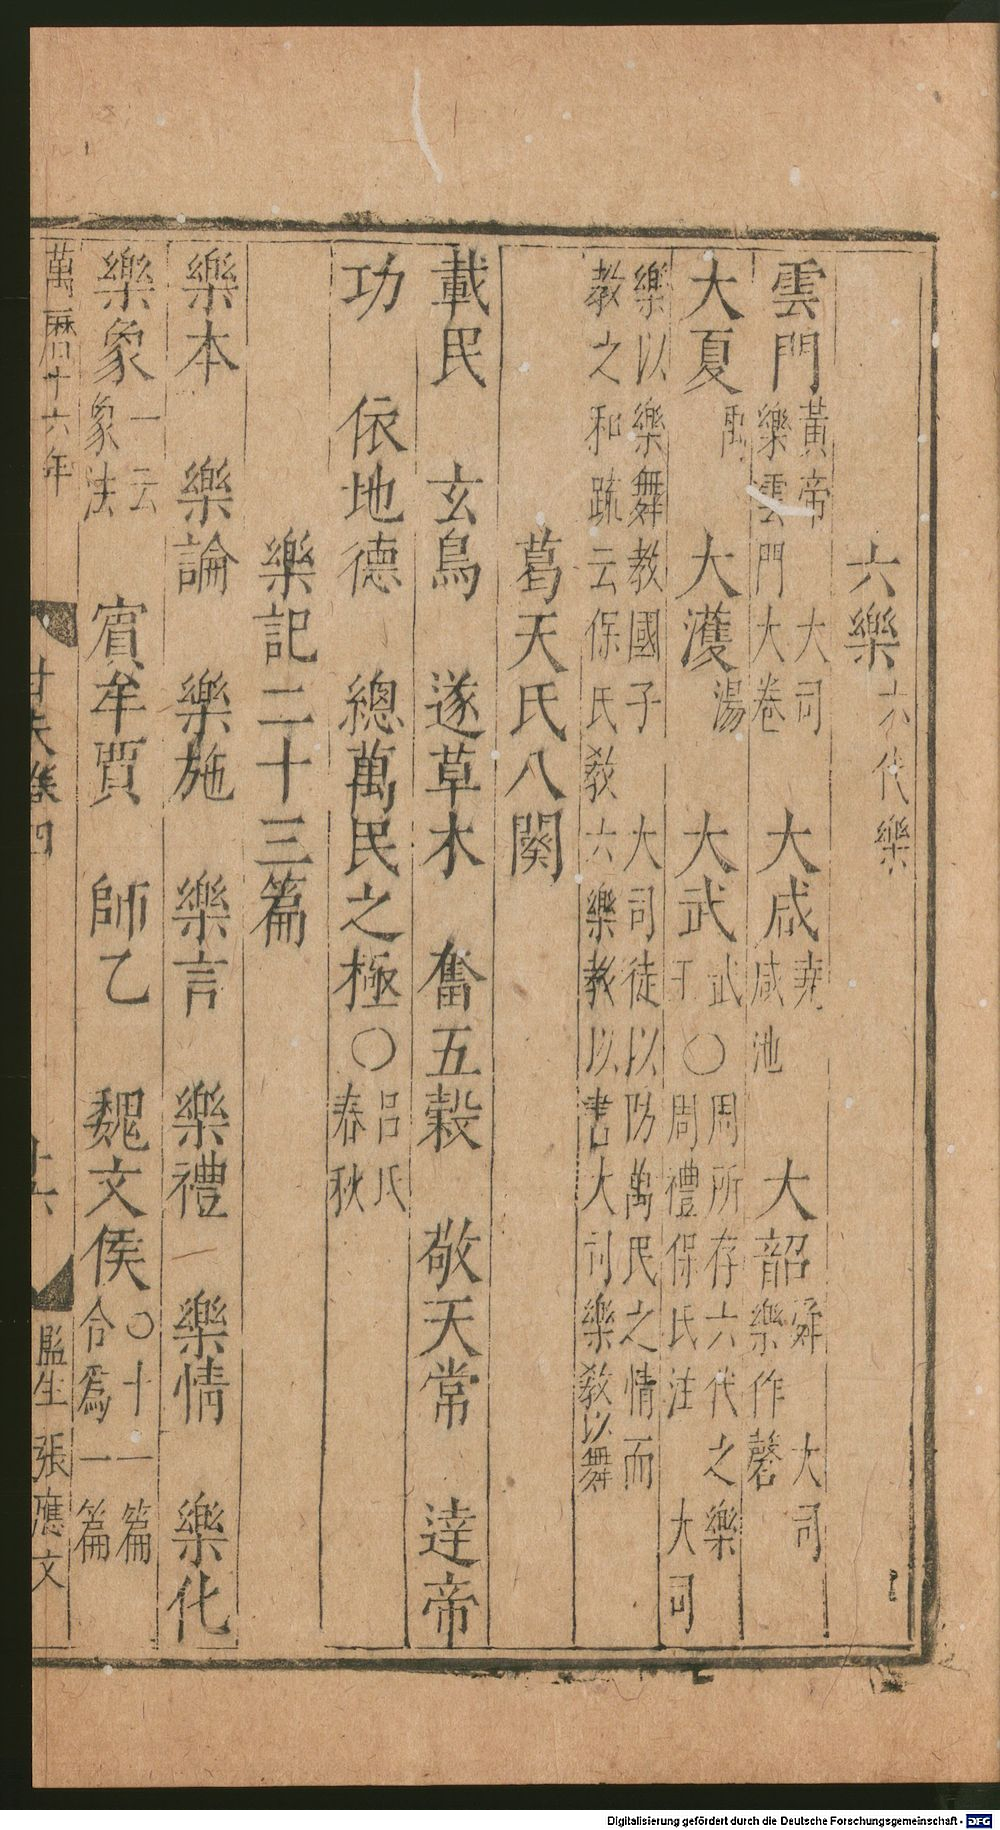 六樂六代樂
雲門黃帝大司樂雲門大卷 大咸堯咸池 大韶舜大司樂作磬
大夏禹 大濩湯 大武武王○周所存六代之樂周禮保氏注大司
樂以樂舞教國子大司徒以防萬民之情而教之和疏云保氏教六樂教以書大司樂教以舞
葛天氏八闋
載民 玄鳥 遂草木 奮五穀 敬天常 達帝
功 依地德 總萬民之極○呂氏春秋
樂記二十三篇
樂本 樂論 樂施 樂言 樂禮 樂情 樂化
樂象一云象法 賓牟賈 師乙 魏文侯○十一篇合爲一篇
萬曆十六年
監生張應文
Digitalisierung gefördert durch die Deutsche Forschungsgemeinschaft - DFG